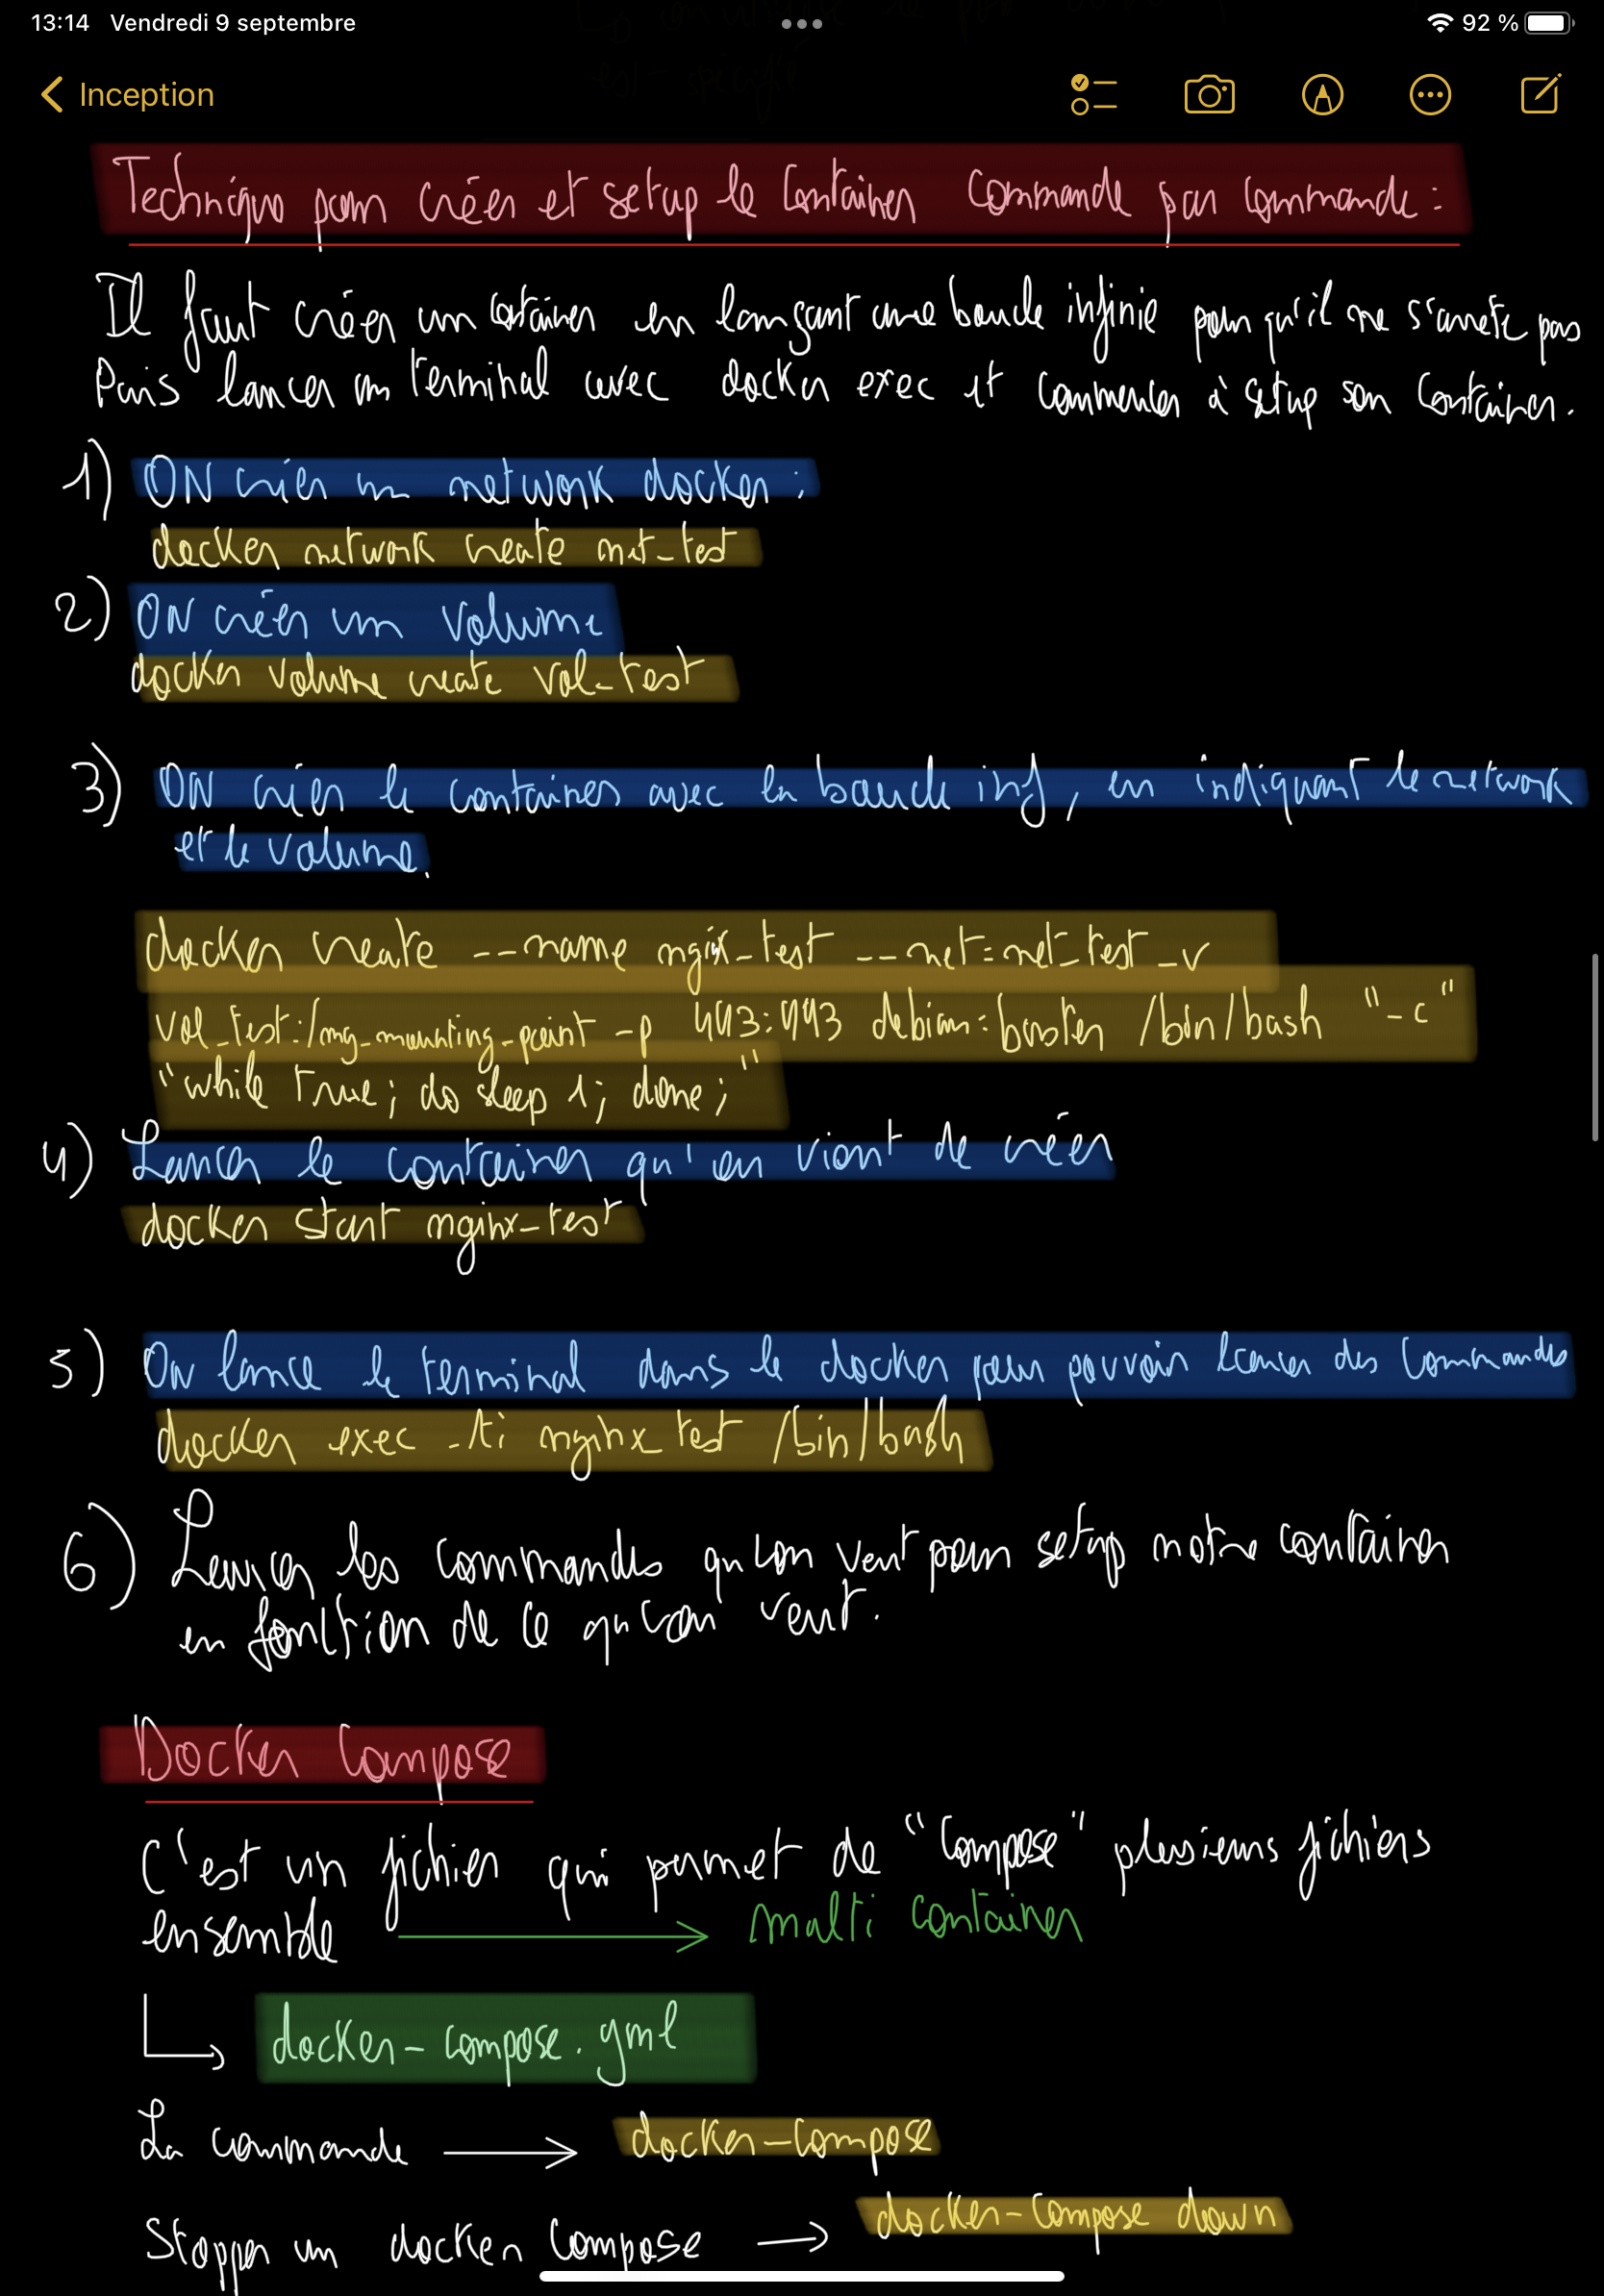 13:14 Vendredi 9 septembre
92 %
Inception
Technique pour créer et setup le Container Commande par commande :
Il faut créer un container en lançant une boucle infinie pour qu'il ne s'arrete pas
Puis lancer un terminal avec docker exec et commencer à setup son container.
1) ON créer un network docker :
docker network create net_test
2) ON créer un Volume
docker volume create vol_test
3) ON créer le container avec la boucle inf, en indiquant le network
et le volume.
docker create --name nginx_test --net=net_test -v
vol_test:/mg_mounting_point -p 443:443 debian:buster /bin/bash "-c"
"while true; do sleep 1; done;"
4) Lancer le container qu'on vient de créer
docker start nginx_test
5) On lance le terminal dans le docker pour pouvoir lancer des commandes
docker exec -ti nginx_test /bin/bash
6) Lancer les commandes qu'on veut pour setup notre container
en fonction de ce qu'on veut.
Docker Compose
C'est un fichier qui permet de "Compose" plusieurs fichiers
ensemble → multi container
docker-compose.yml
La commande → docker-compose
Stopper un docker compose → docker-compose down